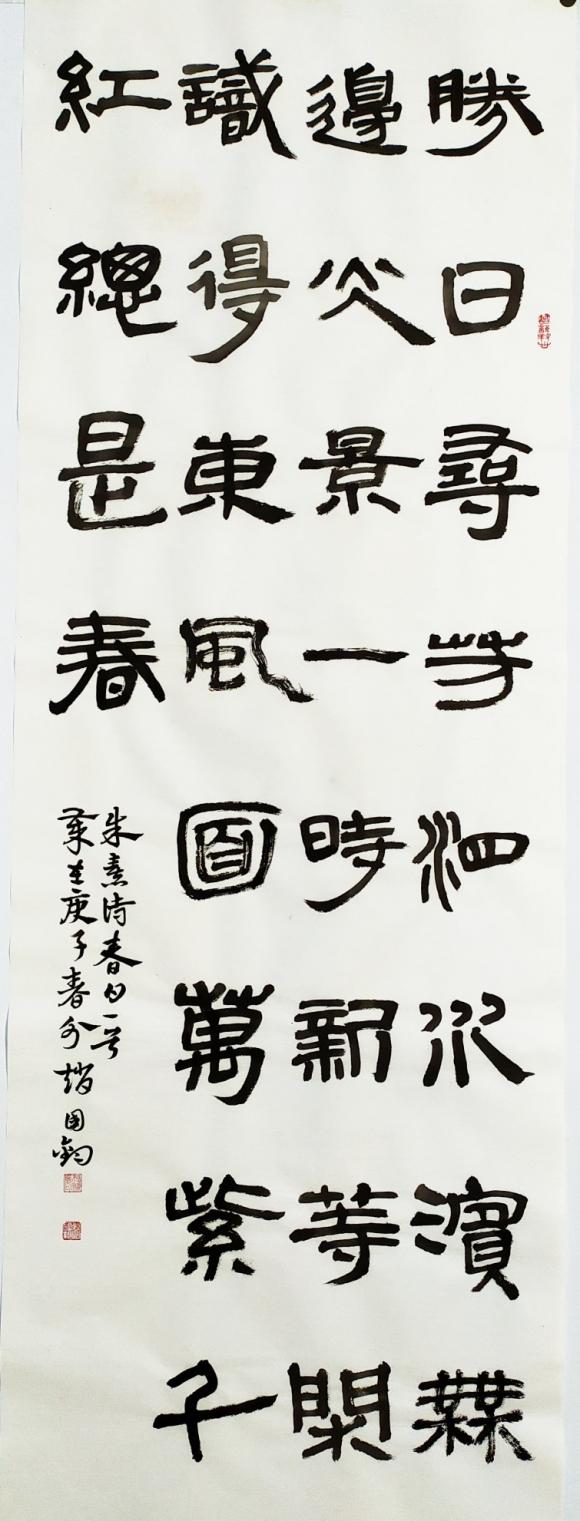 勝日尋芳泗水濱無
邊光景一時新等閑
識得東風面萬紫千
紅總是春
朱熹詩春日一首
歲在庚子春分趙国鈞